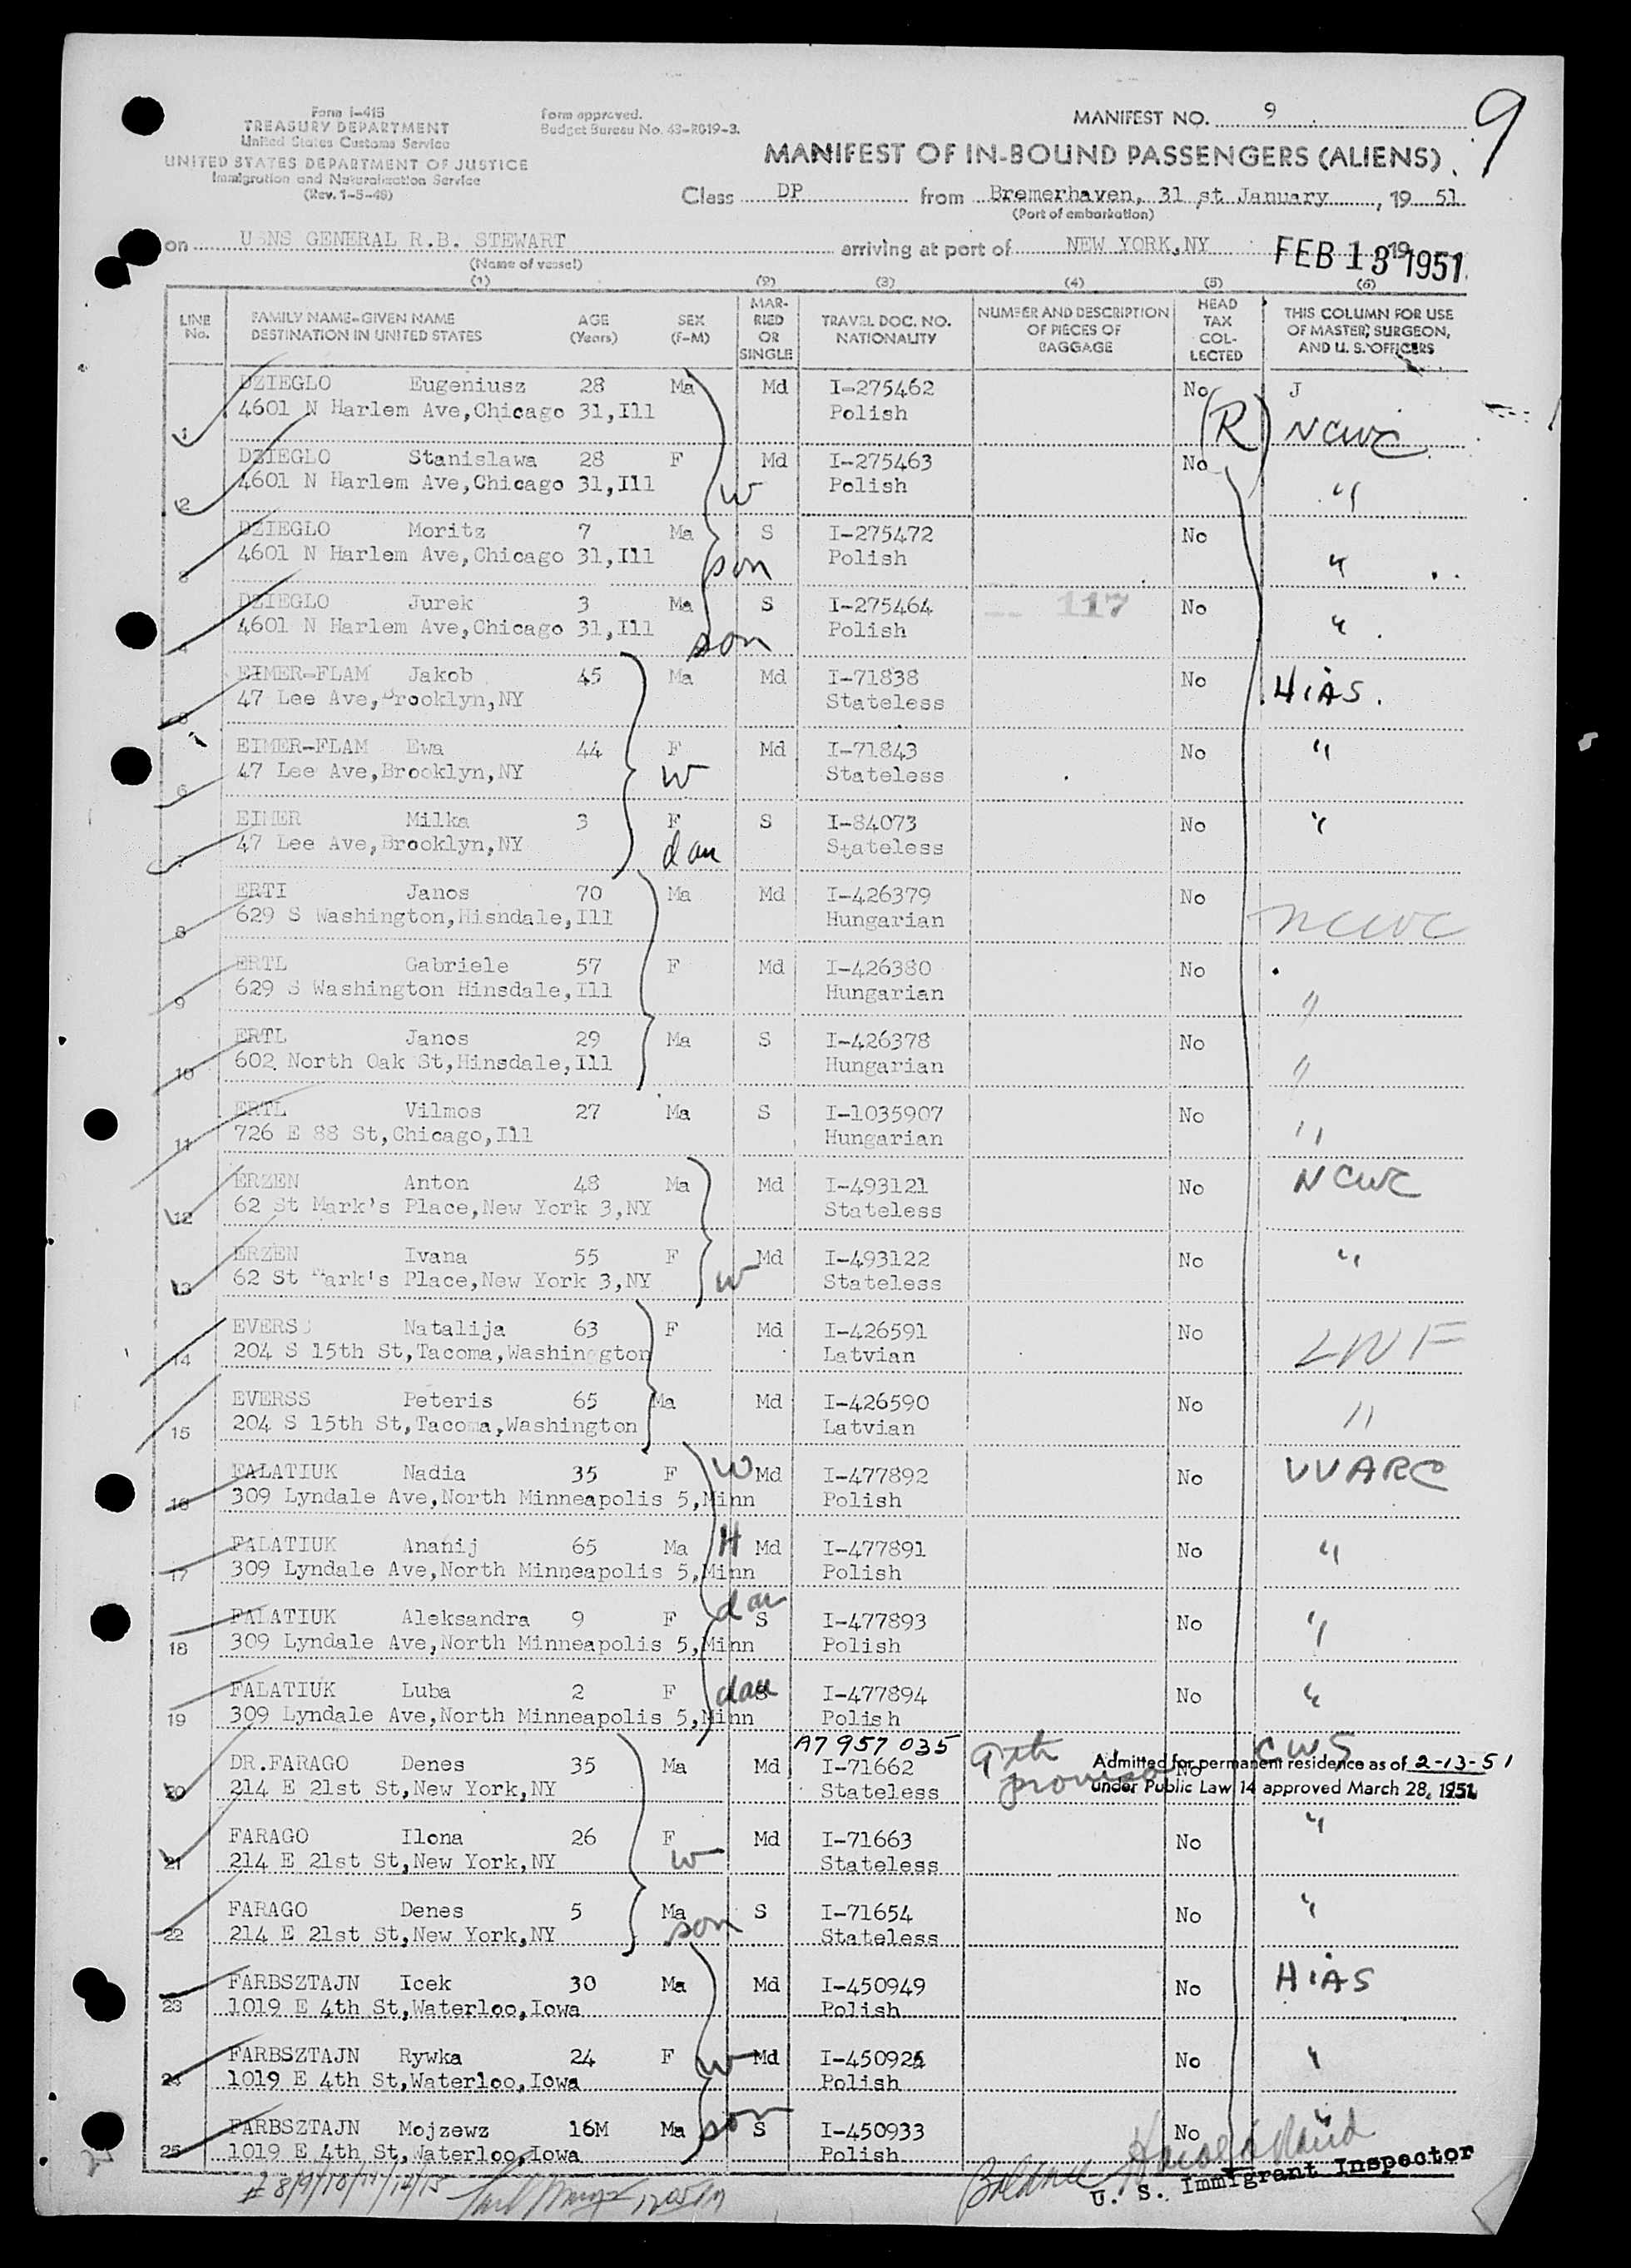 Form I-415
TREASURY DEPARTMENT
United States Customs Service
UNITED STATES DEPARTMENT OF JUSTICE
Immigration and Naturalization Service
(Rev. 1-5-48)
Form approved.
Budget Bureau No. 43-R019-3.
MANIFEST NO. 9
9
MANIFEST OF IN-BOUND PASSENGERS (ALIENS)
Class DP from Bremerhaven, 31 st January, 19 51
(Port of embarkation)
on USNS GENERAL R.B. STEWART arriving at port of NEW YORK,NY FEB 13 1951
(Name of vessel)
(1) (2) (3) (4) (5) (6)
LINE No. FAMILY NAME-GIVEN NAME DESTINATION IN UNITED STATES AGE (Years) SEX (F-M) MARRIED OR SINGLE TRAVEL DOC. NO. NATIONALITY NUMBER AND DESCRIPTION OF PIECES OF BAGGAGE HEAD TAX COLLECTED THIS COLUMN FOR USE OF MASTER, SURGEON, AND U. S. OFFICERS
DZIEGLO Eugeniusz 28 Ma Md I-275462 No J
1 4601 N Harlem Ave,Chicago 31,Ill Polish (R) NCWC
DZIEGLO Stanislawa 28 F Md I-275463 No
2 4601 N Harlem Ave,Chicago 31,Ill w Polish "
DZIEGLO Moritz 7 Ma S I-275472 No
3 4601 N Harlem Ave,Chicago 31,Ill son Polish "
DZIEGLO Jurek 3 Ma S I-275464 117 No
4 4601 N Harlem Ave,Chicago 31,Ill son Polish "
EIMER-FLAM Jakob 45 Ma Md I-71838 No HIAS.
5 47 Lee Ave,Brooklyn,NY Stateless
EIMER-FLAM Ewa 44 F Md I-71843 No "
6 47 Lee Ave,Brooklyn,NY w Stateless
EIMER Milka 3 F S I-84073 No "
7 47 Lee Ave,Brooklyn,NY dau Stateless
ERTI Janos 70 Ma Md I-426379 No
8 629 S Washington,Hisndale,Ill Hungarian NCWC
ERTL Gabriele 57 F Md I-426380 No
9 629 S Washington Hinsdale,Ill Hungarian "
ERTL Janos 29 Ma S I-426378 No
10 602 North Oak St,Hinsdale,Ill Hungarian "
ERTL Vilmos 27 Ma S I-1035907 No
11 726 E 88 St,Chicago,Ill Hungarian "
ERZEN Anton 48 Ma Md I-493121 No NCWC
12 62 St Mark's Place,New York 3,NY Stateless
ERZEN Ivana 55 F Md I-493122 No "
13 62 St Mark's Place,New York 3,NY w Stateless
EVERSS Natalija 63 F Md I-426591 No LWF
14 204 S 15th St,Tacoma,Washington Latvian
EVERSS Peteris 65 Ma Md I-426590 No "
15 204 S 15th St,Tacoma,Washington Latvian
FALATIUK Nadia 35 F W Md I-477892 No UUARC
16 309 Lyndale Ave,North Minneapolis 5,Minn Polish
FALATIUK Ananij 65 Ma H Md I-477891 No "
17 309 Lyndale Ave,North Minneapolis 5,Minn Polish
FALATIUK Aleksandra 9 F dau S I-477893 No "
18 309 Lyndale Ave,North Minneapolis 5,Minn Polish
FALATIUK Luba 2 F dau S I-477894 No "
19 309 Lyndale Ave,North Minneapolis 5,Minn Polish
A7 957 035 9th proviso CWS
DR.FARAGO Denes 35 Ma Md I-71662 No Admitted for permanent residence as of 2-13-51
20 214 E 21st St,New York,NY Stateless under Public Law 14 approved March 28, 1951
FARAGO Ilona 26 F Md I-71663 No "
21 214 E 21st St,New York,NY w Stateless
FARAGO Denes 5 Ma S I-71654 No "
22 214 E 21st St,New York,NY son Stateless
FARBSZTAJN Icek 30 Ma Md I-450949 No HIAS
23 1019 E 4th St,Waterloo,Iowa Polish
FARBSZTAJN Rywka 24 F w Md I-450925 No "
24 1019 E 4th St,Waterloo,Iowa Polish
FARBSZTAJN Mojzewz 16M Ma son S I-450933 No "
25 1019 E 4th St,Waterloo,Iowa Polish
# 8/9/10/11/14/15
Balance
U. S. Immigrant Inspector